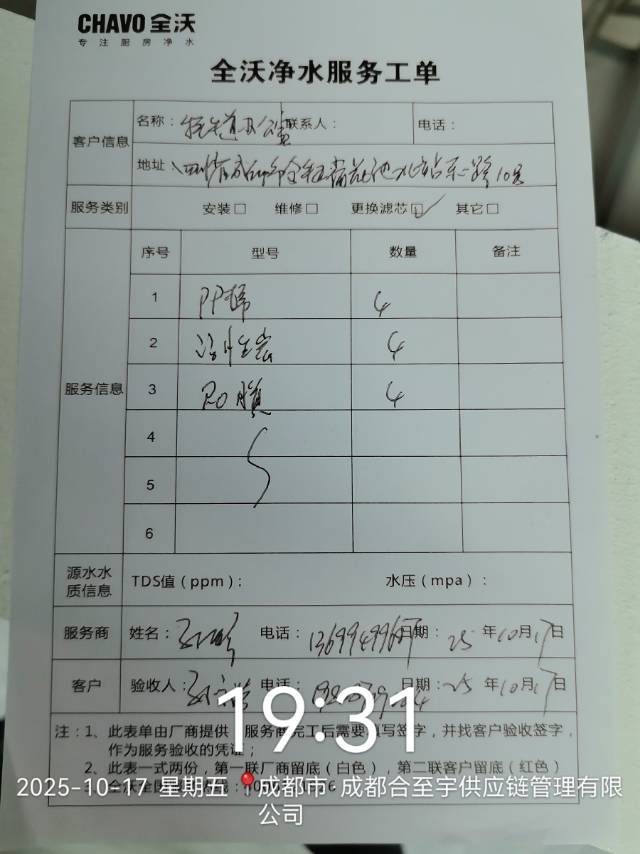 CHAVO 全沃
专注厨房净水
全沃净水服务工单
客户信息
名称：
联系人：
电话：
地址
10号
服务类别
安装□ 维修□ 更换滤芯☑ 其它□
服务信息
序号 型号 数量 备注
1 PP棉 4
2 活性炭 4
3 RO膜 4
4
5
6
源水水质信息
TDS值（ppm）： 水压（mpa）：
服务商 姓名： 电话： 日期：25年10月17日
客户 验收人： 电话： 日期：25年10月17日
注：1、此表单由厂商提供，服务商完工后需要填写签字，并找客户验收签字，
作为服务验收的凭证；
2、此表一式两份，第一联厂商留底（白色），第二联客户留底（红色）
19:31
2025-10-17 星期五 成都市·成都合至宇供应链管理有限
公司